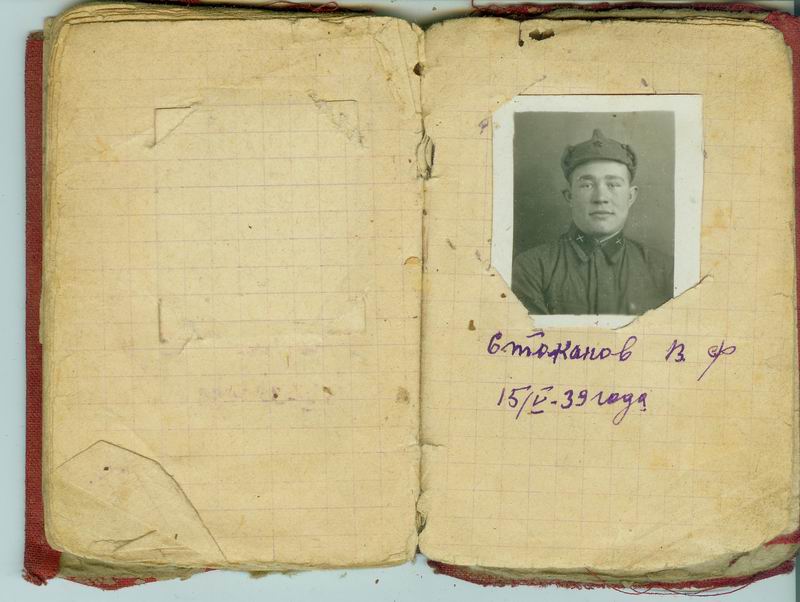 Стаканов В. Ф
15/V-39 года